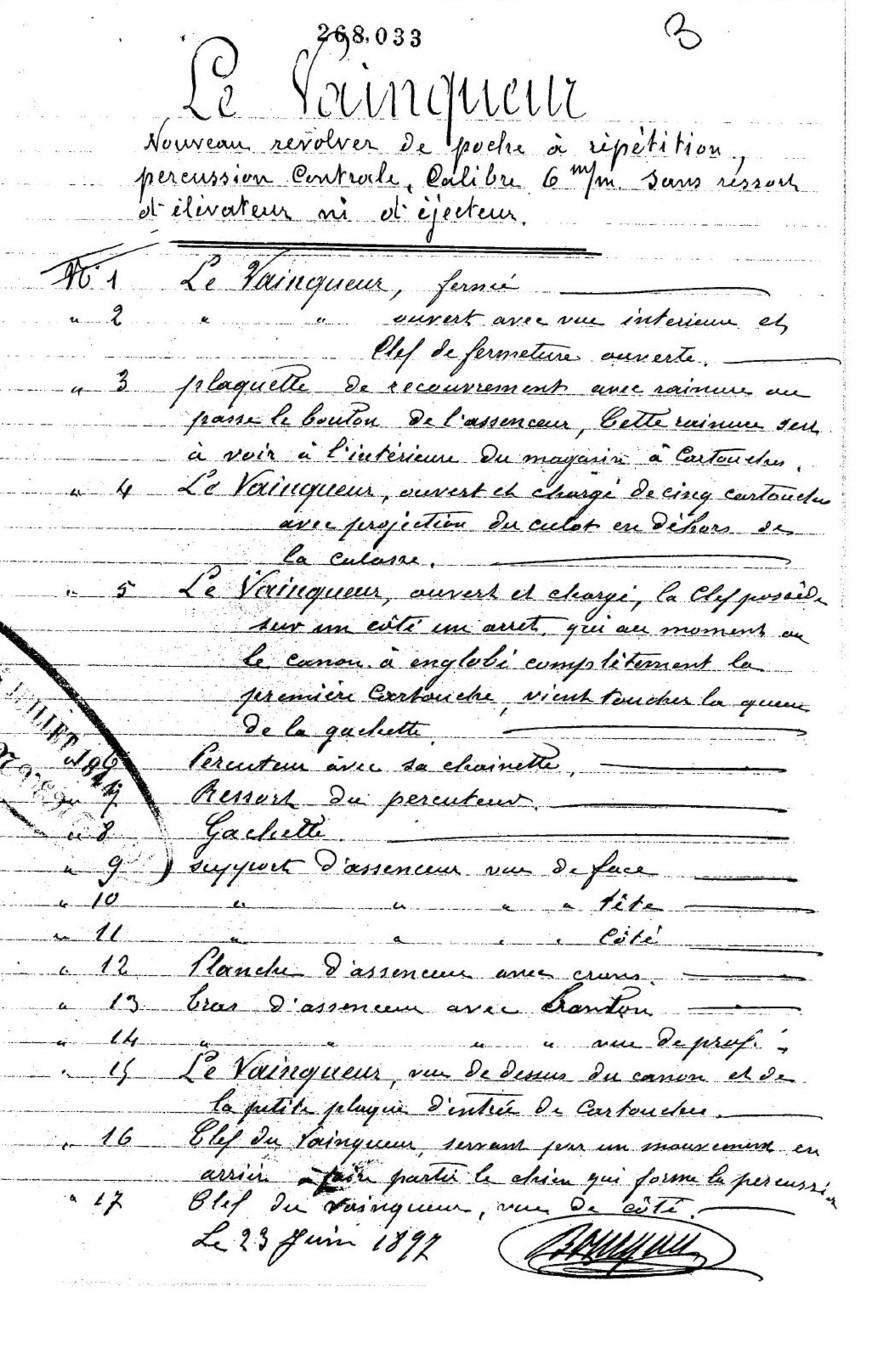 268,033
3
Le Vainqueur
Nouveau revolver de poche à répétition,
percussion Centrale, Calibre 6 m/m. Sans ressort
d'élévateur ni d'éjecteur.
N° 1 Le Vainqueur, fermé
" 2 " " ouvert avec vue interieure et
Clef de fermeture ouverte.
" 3 plaquette de recouvrement avec rainure ou
passe le bouton de l'assenceur, Cette rainure sert
à voir à l'intérieure du magasin à Cartouches.
" 4 Le Vainqueur, ouvert et chargé de cinq cartouches
avec projection du culot en dehors de
la culasse.
" 5 Le Vainqueur, ouvert et chargé, la Clef possède
sur un côté un arret, qui au moment ou
le canon à englobé complètement la
première Cartouche, vient toucher la queue
de la gachette
JUILLET 189
" 6 Percuteur avec sa chainette,
" 7 Ressort du percuteur.
" 8 Gachette
" 9 support d'assenceur vue de face
" 10 " " " " tête
" 11 " " " " Côté
" 12 Planche d'assenceur avec crans.
" 13 bras d'assenceur avec
" 14 " " " " vue de prof.
" 15 Le Vainqueur, vue de dessus du canon et de
la petite plaque d'entrée de Cartouches.
" 16 Clef du Vainqueur, servant par un mouvement en
arrière à faire partir le chien qui forme la percussion
" 17 Clef du vainqueur, vue de côté.
Le 23 Juin 1897